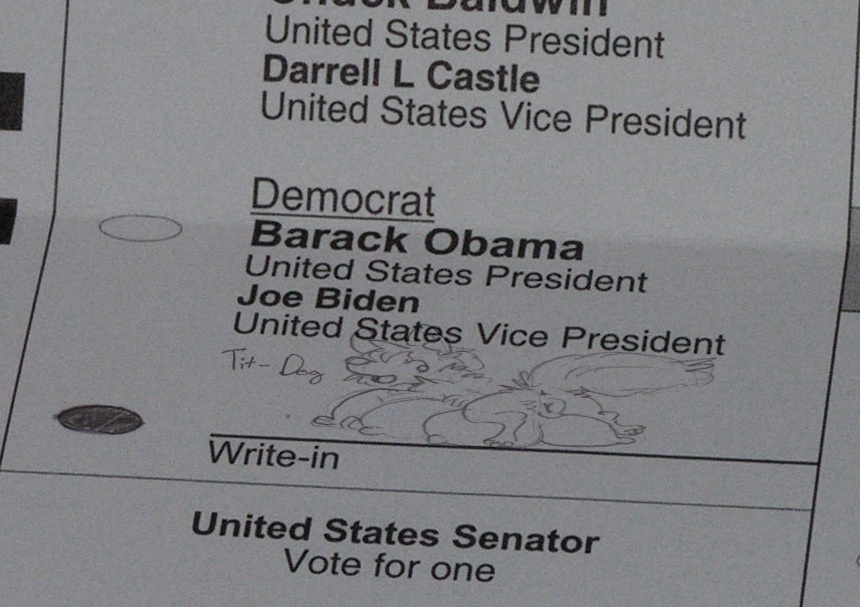 Chuck Baldwin
United States President
Darrell L Castle
United States Vice President
Democrat
Barack Obama
United States President
Joe Biden
United States Vice President
Tit-Dog
Write-in
United States Senator
Vote for one